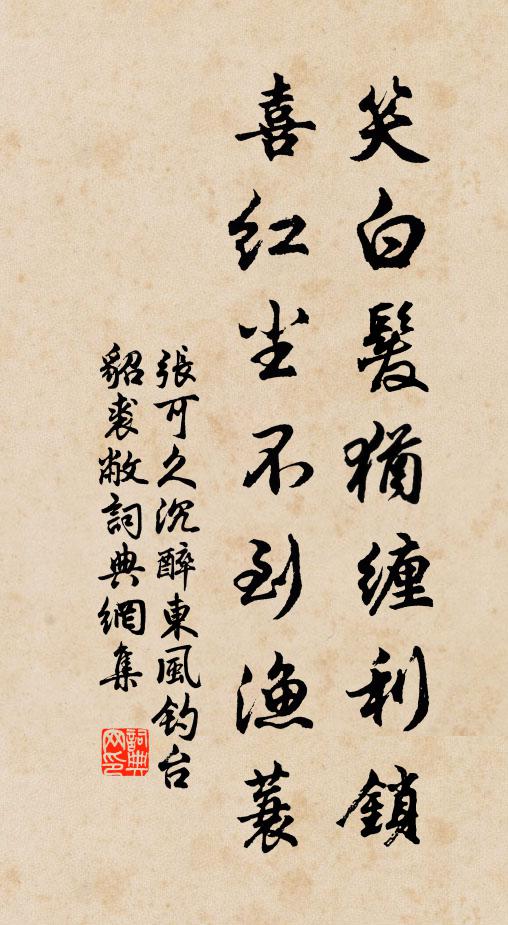 笑白髮猶纏利鎖
喜紅尘不到漁蓑
張可久沉醉東風釣台
貂裘敝詞典網集
詞典网印